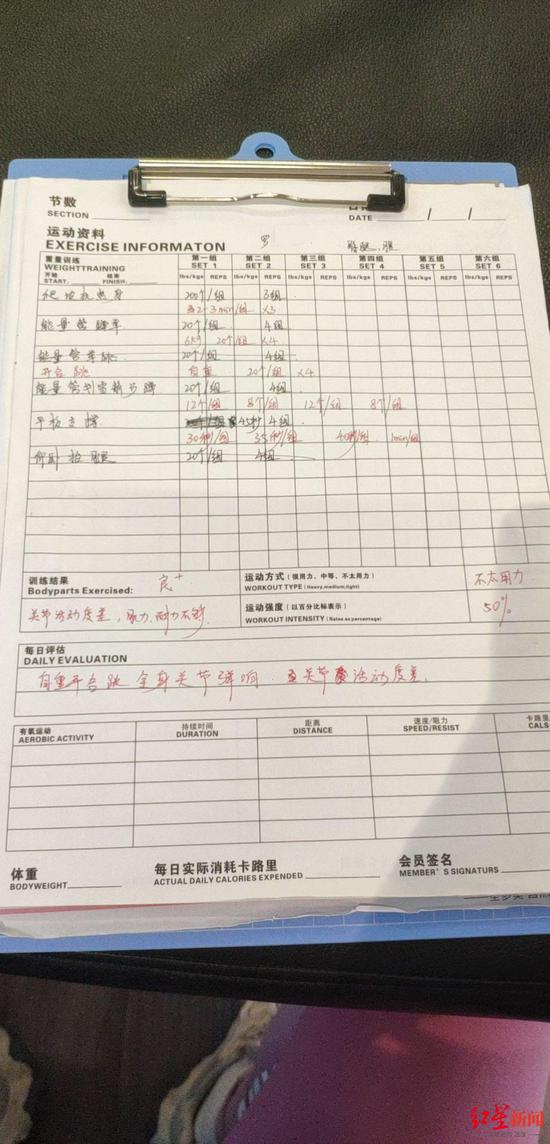 节数
SECTION
DATE / /
运动资料
EXERCISE INFORMATON 罗 臀腿,腹
重量训练 第一组 第二组 第三组 第四组 第五组 第六组
WEIGHTTRAINING SET 1 SET 2 SET 3 SET 4 SET 5 SET 6
开始 结束
START: FINISH: lbs/kgs REPS lbs/kgs REPS lbs/kgs REPS lbs/kgs REPS lbs/kgs REPS lbs/kgs REPS
200个/组 3组
2-3min/组 ×3
能量管 20个/组 4组
6kg 20个/组 ×4
能量管 跳 20个/组 4组
开合跳 自重 20个/组 ×4
能量管 20个/组 4组
12个/组 8个/组 12个/组 8个/组
平板支撑 45秒 4组
30秒/组 35秒/组 40秒/组 1min/组
20个/组 4组
训练结果 良+ 运动方式(很用力、中等、不太用力) 不太用力
Bodyparts Exercised: WORKOUT TYPE (Heavy,medium,light)
关节活动度差,肌力、耐力不错 运动强度(以百分比标表示) 50%
WORKOUT INTENSITY (Rates as percentage)
每日评估
DAILY EVALUATION
自重开合跳 全身关节弹响 关节 活动度差.
有氧运动 持续时间 距离 速度/阻力 卡路里
AEROBIC ACTIVITY DURATION DISTANCE SPEED/RESIST CALS
体重 每日实际消耗卡路里 会员签名
BODYWEIGHT ACTUAL DAILY CALORIES EXPENDED MEMBER'S SIGNATURS
红星新闻